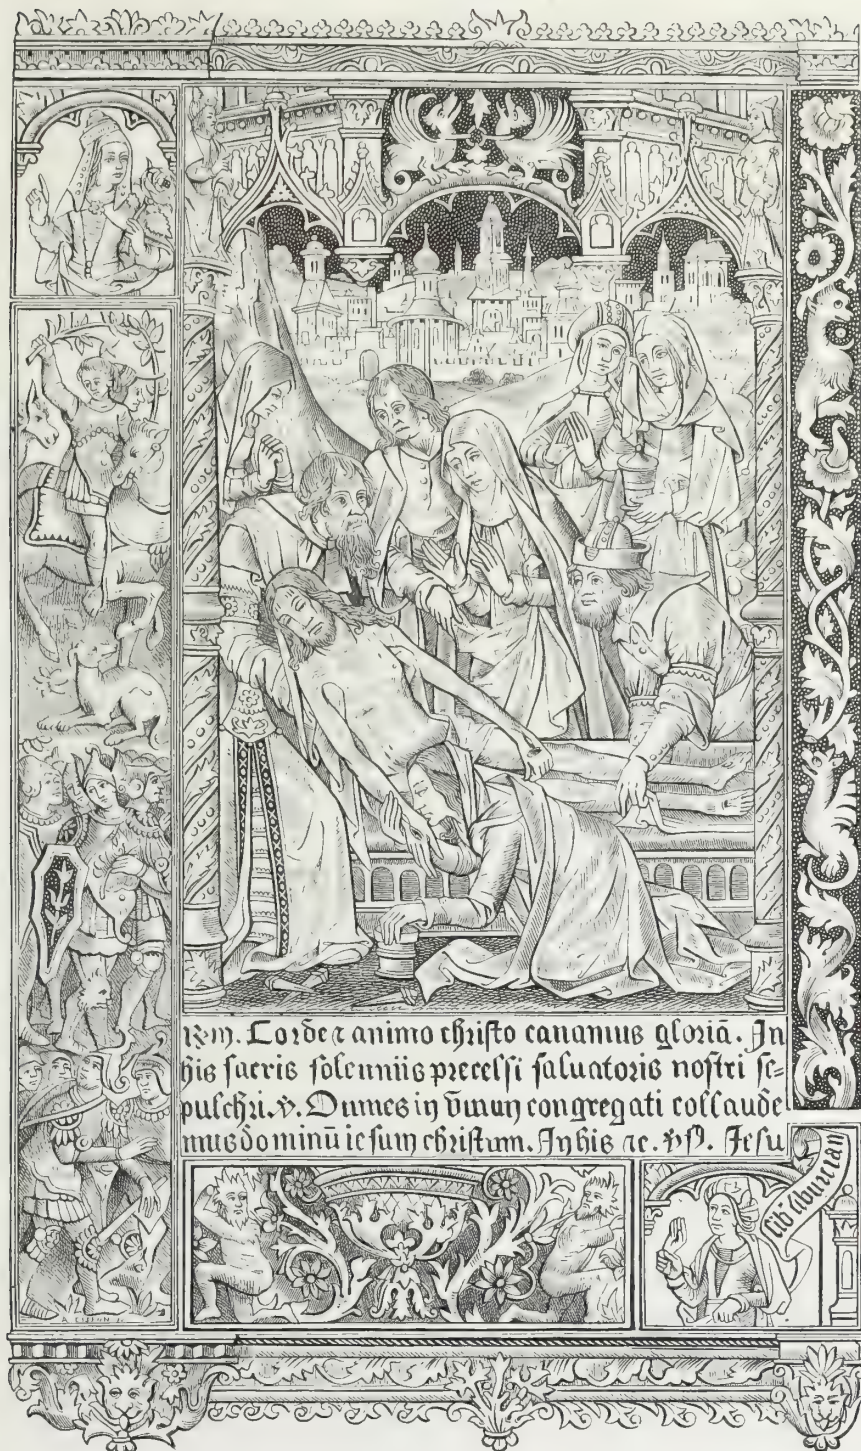 Corde ⁊ animo christo canamus gloriā. In
his sacris solenniis precelsi saluatoris nostri se=
pulchri. ℣. Omnes in vnum congregati collaude
mus dominū iesum christum. In his ⁊c. ps̄. Jesu